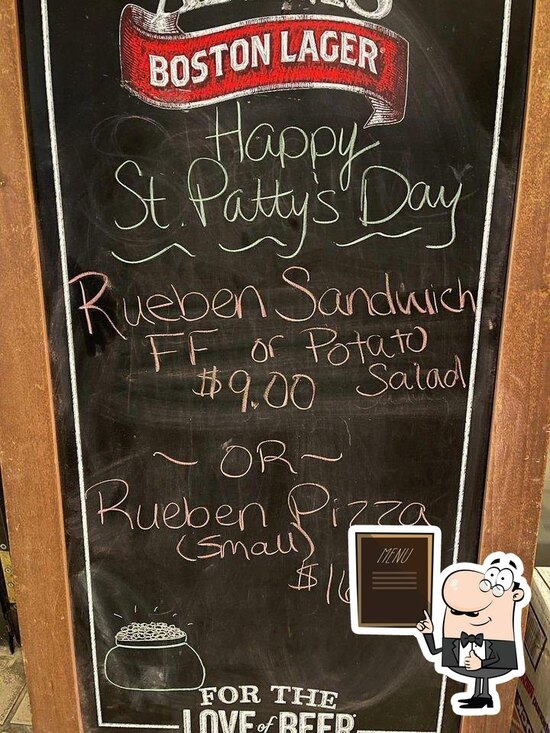 BOSTON LAGER
Happy
St. Patty's Day
Rueben Sandwich
FF or Potato
$9.00 Salad
~ OR ~
Rueben Pizza
(small)
MENU
FOR THE
LOVE of BEER